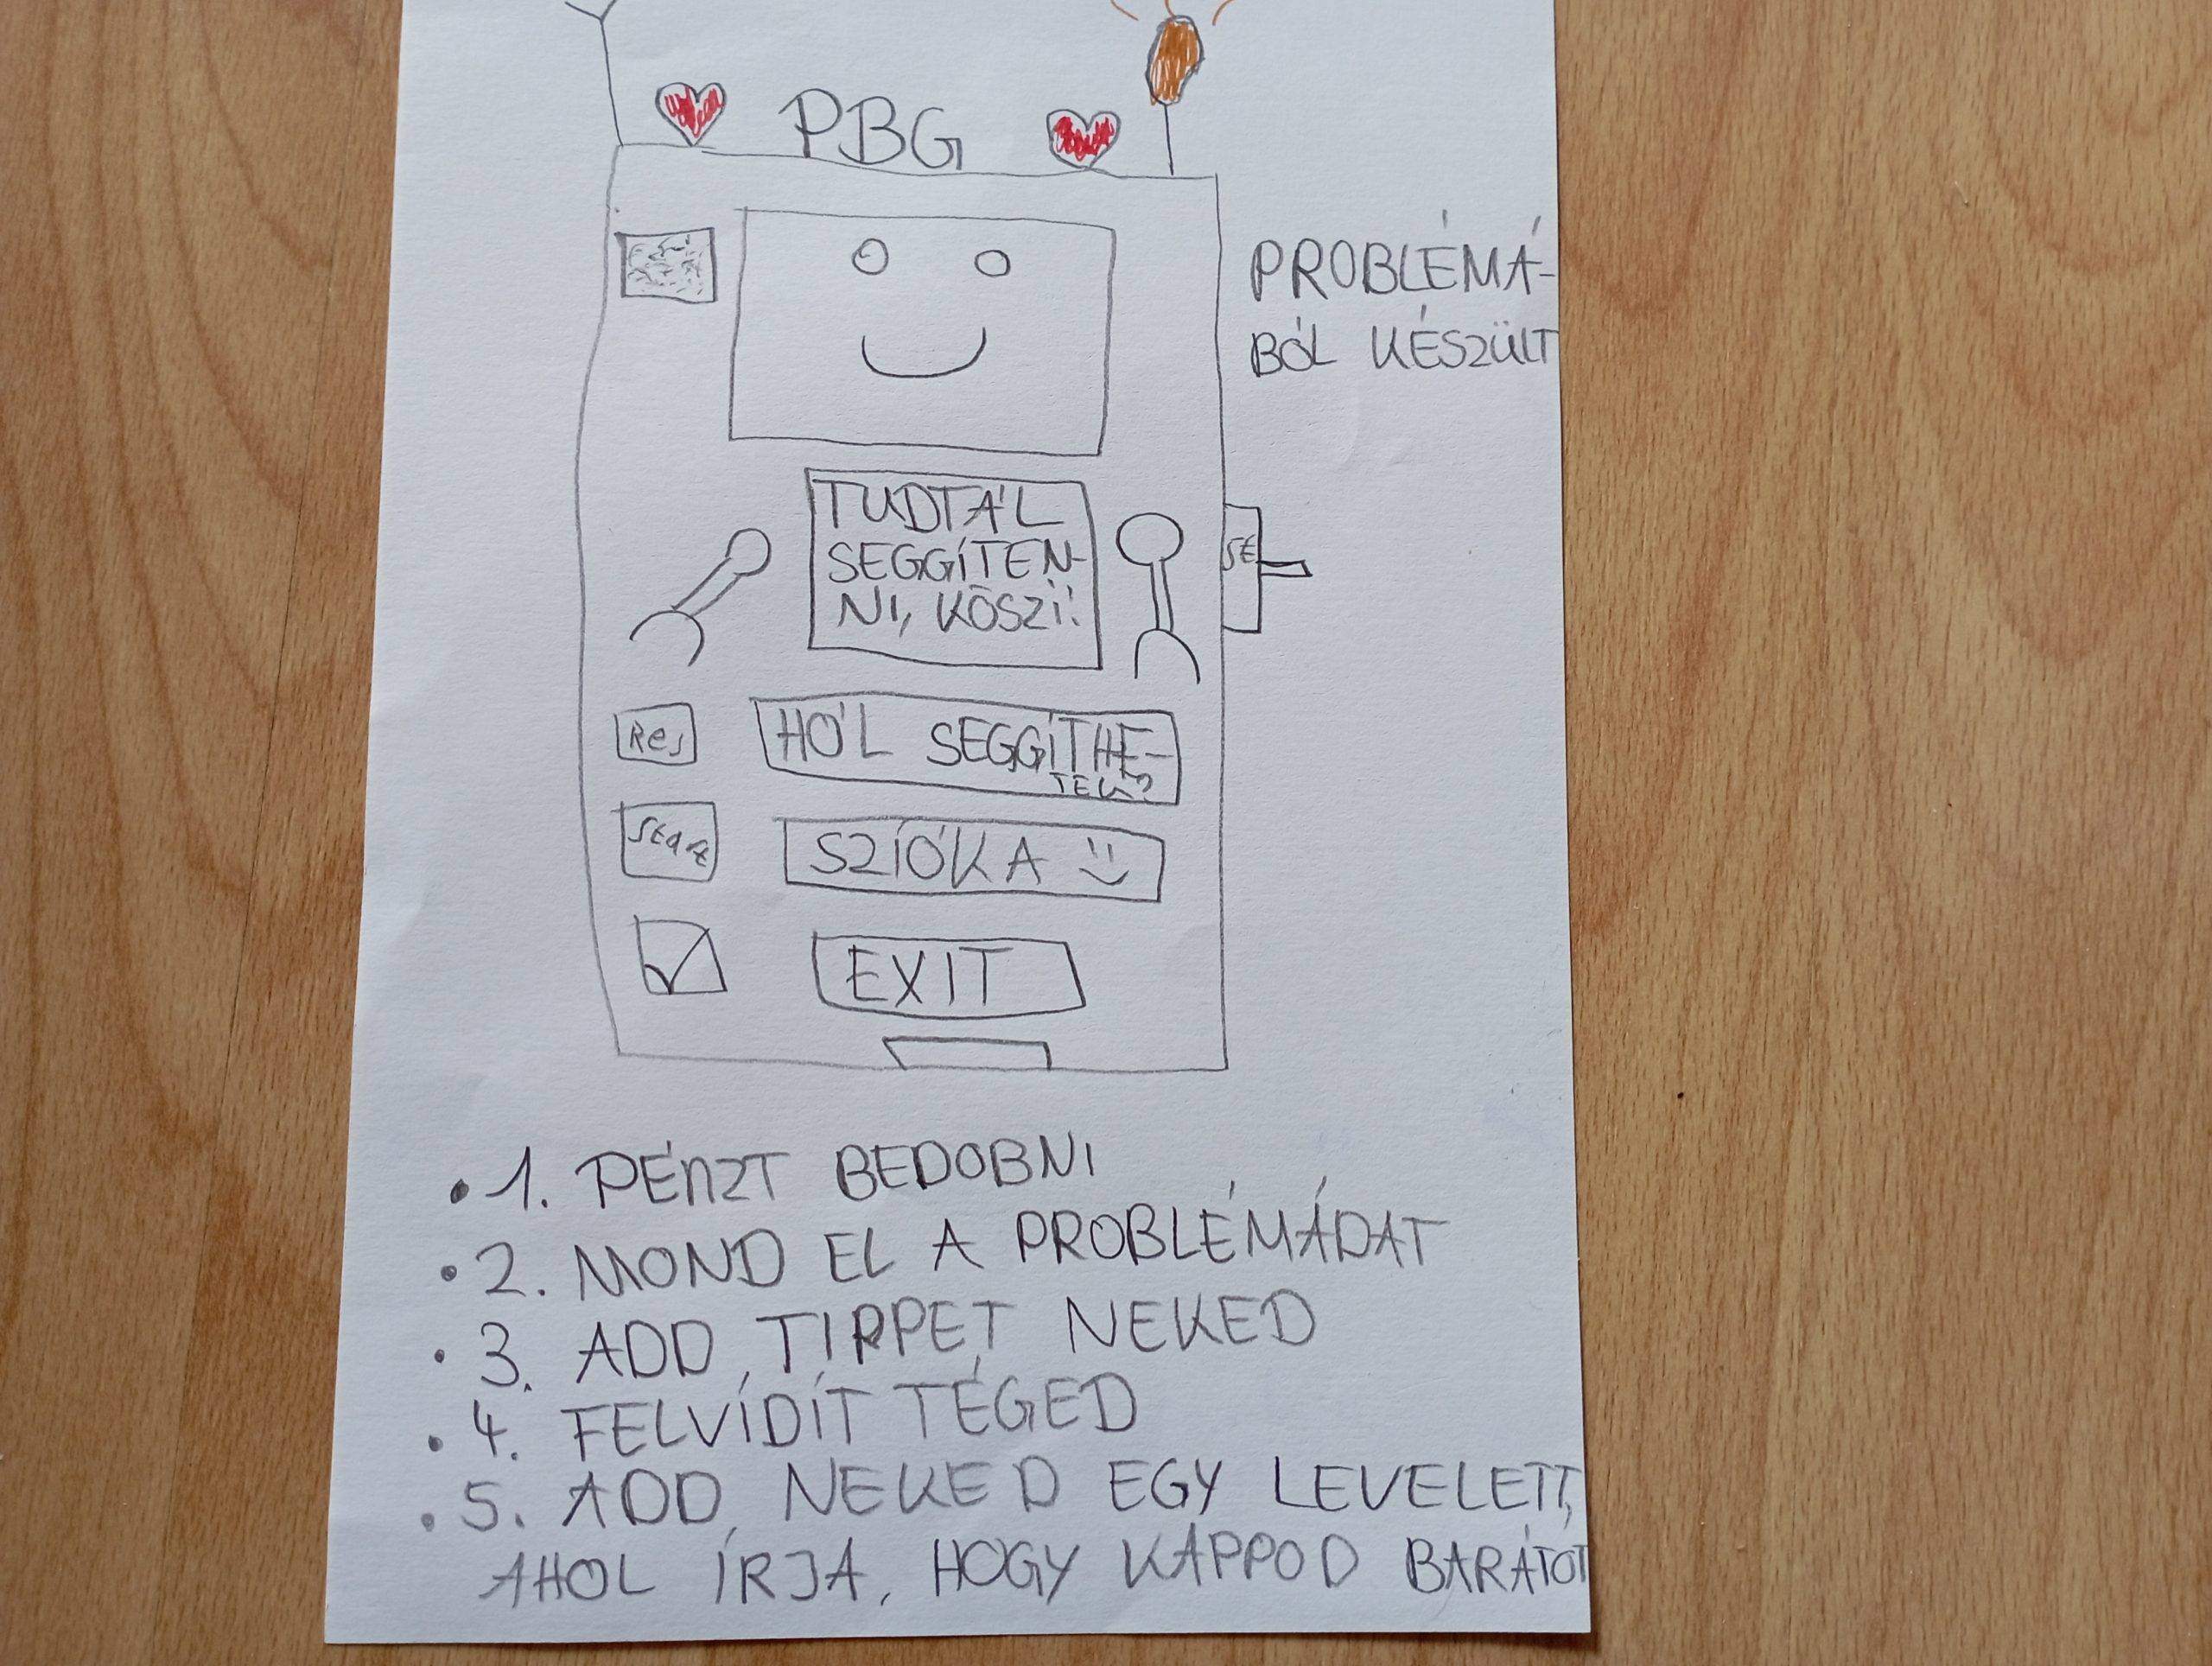 PBG
PROBLÉMÁ-
BÓL KÉSZÜLT
TUDTÁL
SEGGÍTEN-
NI, KÖSZI!
SE
Res
HÓL SEGGÍTHE-
TEK?
Start
SZIÓKA
EXIT
• 1. PÉNZT BEDOBNI
• 2. MOND EL A PROBLÉMÁDAT
• 3. ADD TIPPET NEKED
• 4. FELVÍDÍT TÉGED
• 5. ADD NEKED EGY LEVELETT,
AHOL ÍRJA, HOGY KAPPOD BARÁTOT